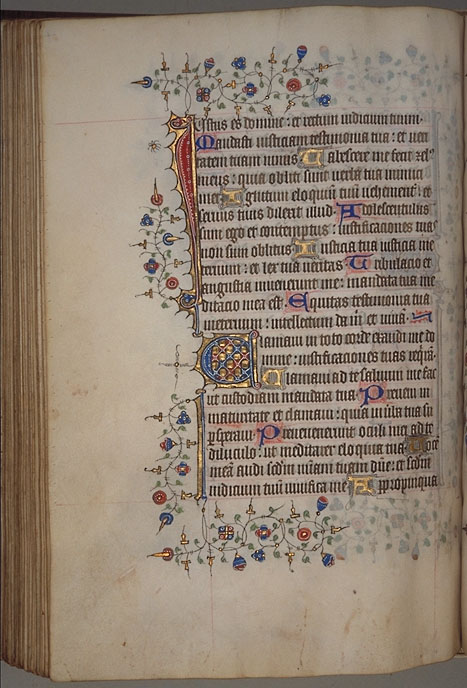 Iustus es domine : et rectum iudicium tuum.
Mandasti iusticiam testimonia tua : et veri
tatem tuam nimis Tabescere me fecit zel
meus : quia obliti sunt verba tua inimici
mei Ignitum eloquium tuum vehementer : et
servus tuus dilexit illud. Adolescentulus
sum ego et contemptus : iustificationes tuas
non sum oblitus Iusticia tua iusticia in e
ternum : et lex tua veritas Tribulacio et
angustia invenerunt me : mandata tua me
ditacio mea est. Equitas testimonia tua
in eternum : intellectum da m et vivam.
Clamavi in toto corde exaudi me do
mine : iustificaciones tuas requiram.
Clamavi ad te salvum me fac
ut custodiam mandata tua Preveni in
maturitate et clamavi : quia in verba tua su
persperavi Prevenerunt oculi mei ad te
diluculo : ut meditarer eloquia tua Voce
meam audi secdm miam tuam dne : et secdm
iudicium tuum vivifica me Appropinqua